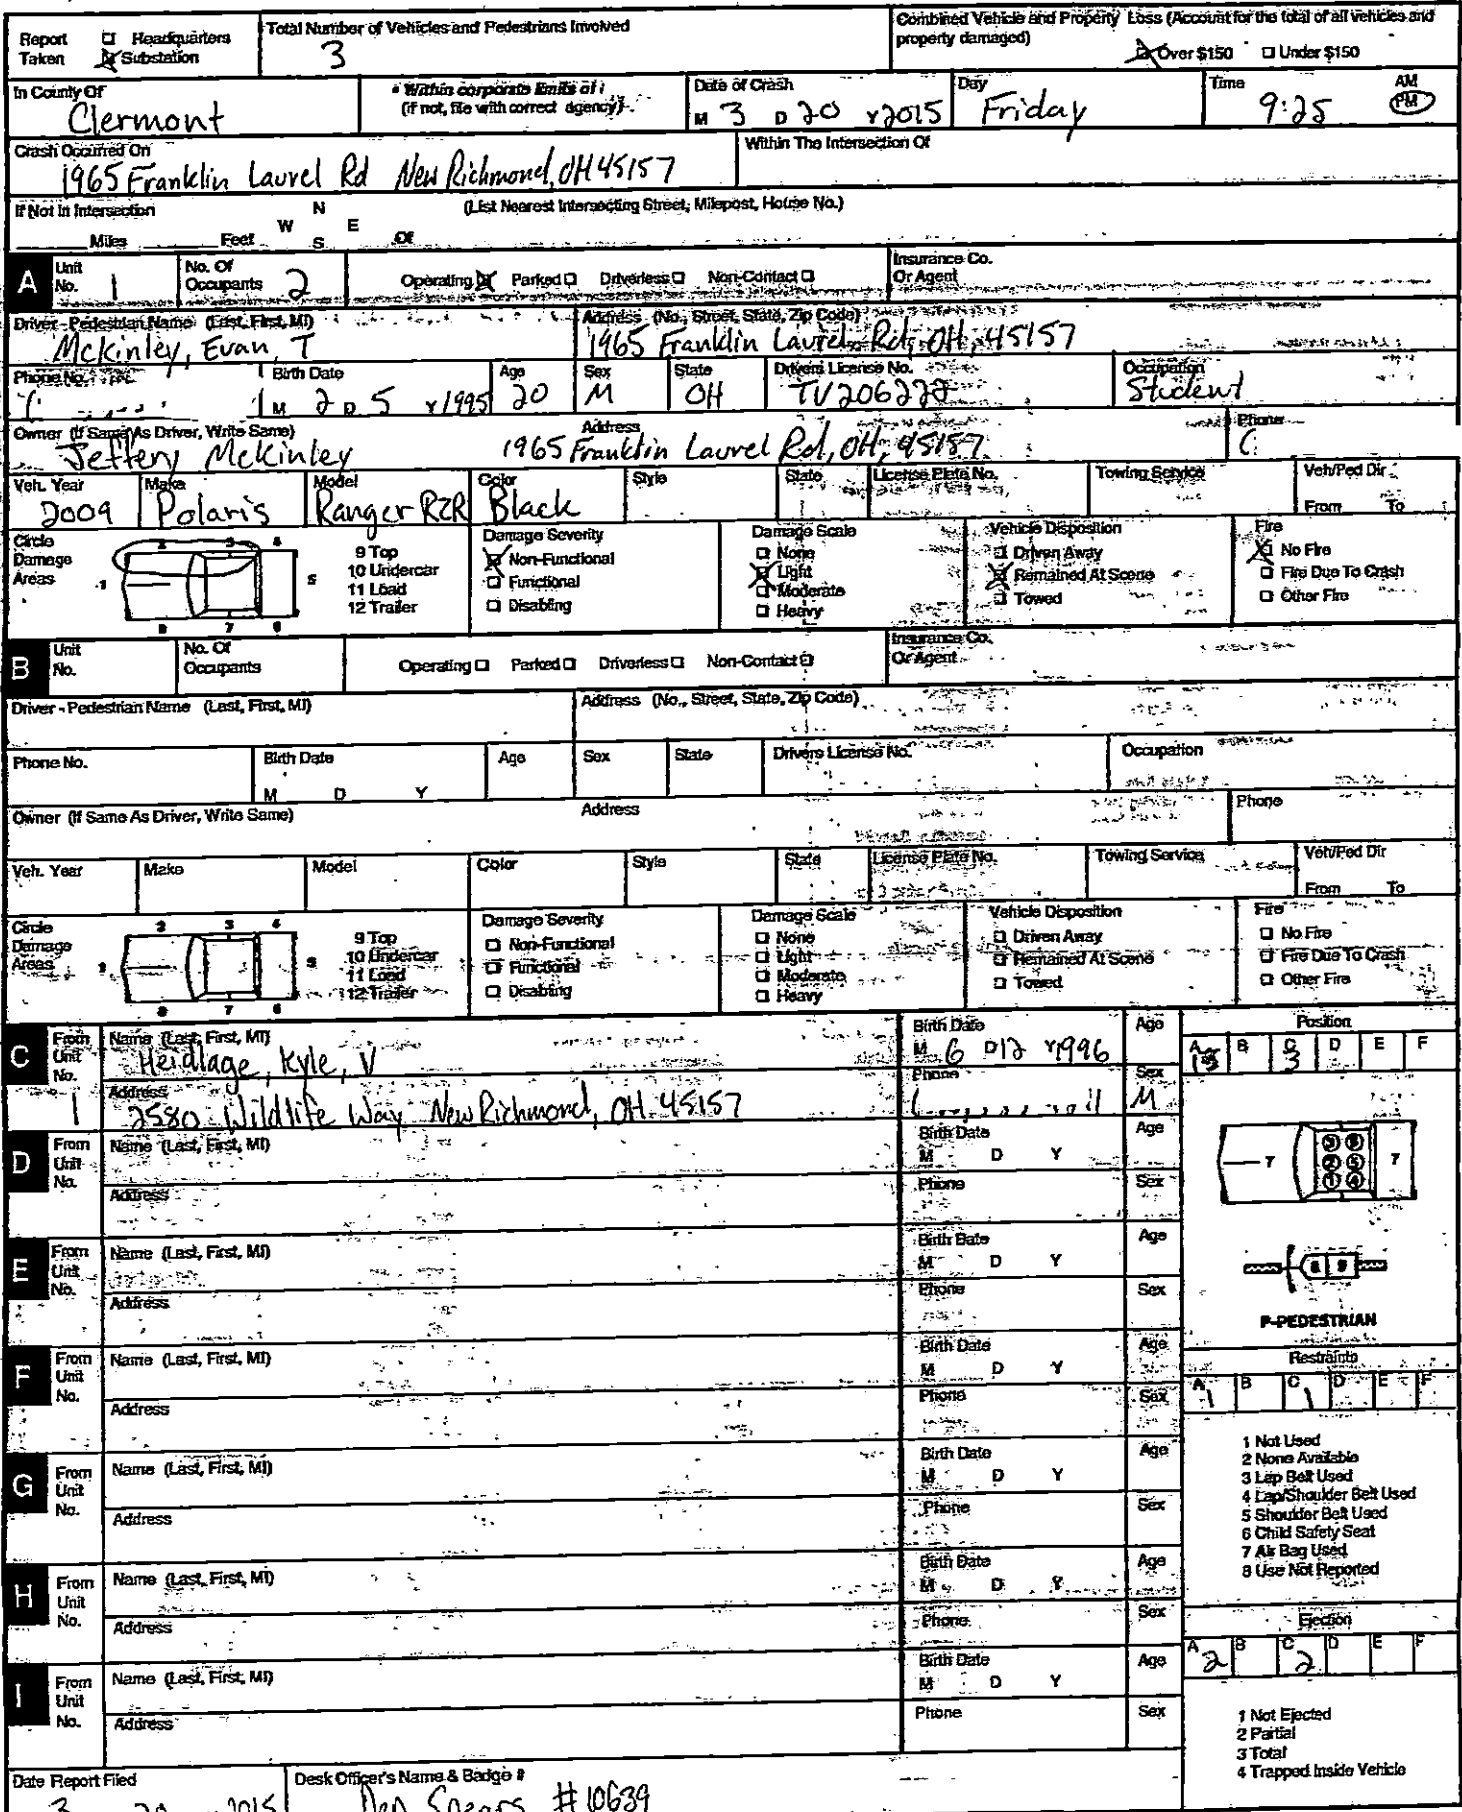 Report Taken ☐ Headquarters ☒ Substation
Total Number of Vehicles and Pedestrians Involved
3
Combined Vehicle and Property Loss (Account for the total of all vehicles and property damaged)
☒ Over $150 ☐ Under $150
In County Of
Clermont
Within corporate limits of
(if not, file with correct agency)
Date of Crash
M 3 D 20 Y 2015
Day
Friday
Time
9:25
AM
PM
Crash Occurred On
1965 Franklin Laurel Rd New Richmond, OH 45157
Within The Intersection Of
If Not In Intersection
(List Nearest Intersecting Street, Milepost, House No.)
Miles Feet N W E S Of
A Unit No. 1
No. Of Occupants 2
Operating ☒ Parked ☐ Driverless ☐ Non-Contact ☐
Insurance Co. Or Agent
Driver - Pedestrian Name (Last, First, MI)
McKinley, Evan, T
Address (No., Street, State, Zip Code)
1965 Franklin Laurel Rd, OH, 45157
Phone No.
Birth Date
M 2 D 5 Y 1995
Age
20
Sex
M
State
OH
Drivers License No.
TV206222
Occupation
Student
Owner (If Same As Driver, Write Same)
Jeffery McKinley
Address
1965 Franklin Laurel Rd, OH, 45157
Phone
Veh. Year
2009
Make
Polaris
Model
Ranger RZR
Color
Black
Style
State
License Plate No.
Towing Service
Veh/Ped Dir
From To
Circle Damage Areas
1 2 3 4 5 6 7 8
9 Top
10 Undercar
11 Load
12 Trailer
Damage Severity
☒ Non-Functional
☐ Functional
☐ Disabling
Damage Scale
☐ None
☒ Light
☐ Moderate
☐ Heavy
Vehicle Disposition
☐ Driven Away
☒ Remained At Scene
☐ Towed
Fire
☒ No Fire
☐ Fire Due To Crash
☐ Other Fire
B Unit No.
No. Of Occupants
Operating ☐ Parked ☐ Driverless ☐ Non-Contact ☐
Insurance Co. Or Agent
Driver - Pedestrian Name (Last, First, MI)
Address (No., Street, State, Zip Code)
Phone No.
Birth Date
M D Y
Age
Sex
State
Drivers License No.
Occupation
Owner (If Same As Driver, Write Same)
Address
Phone
Veh. Year
Make
Model
Color
Style
State
License Plate No.
Towing Service
Veh/Ped Dir
From To
Circle Damage Areas
2 3 4 7 6
9 Top
10 Undercar
11 Load
12 Trailer
Damage Severity
☐ Non-Functional
☐ Functional
☐ Disabling
Damage Scale
☐ None
☐ Light
☐ Moderate
☐ Heavy
Vehicle Disposition
☐ Driven Away
☐ Remained At Scene
☐ Towed
Fire
☐ No Fire
☐ Fire Due To Crash
☐ Other Fire
C From Unit No. 1
Name (Last, First, MI)
Heidlage, Kyle, V
Birth Date
M 6 D 12 Y 1996
Age
Address
2580 Wildlife Way New Richmond, OH 45157
Phone
Sex
M
D From Unit No.
Name (Last, First, MI)
Birth Date
M D Y
Age
Address
Phone
Sex
E From Unit No.
Name (Last, First, MI)
Birth Date
M D Y
Age
Address
Phone
Sex
F From Unit No.
Name (Last, First, MI)
Birth Date
M D Y
Age
Address
Phone
Sex
G From Unit No.
Name (Last, First, MI)
Birth Date
M D Y
Age
Address
Phone
Sex
H From Unit No.
Name (Last, First, MI)
Birth Date
M D Y
Age
Address
Phone
Sex
I From Unit No.
Name (Last, First, MI)
Birth Date
M D Y
Age
Address
Phone
Sex
Position
A B C 3 D E F
7 3 6 2 5 1 4 7
8 9
P-PEDESTRIAN
Restraints
A 1 B C 1 D E F
1 Not Used
2 None Available
3 Lap Belt Used
4 Lap/Shoulder Belt Used
5 Shoulder Belt Used
6 Child Safety Seat
7 Air Bag Used
8 Use Not Reported
Ejection
A 2 B C 2 D E F
1 Not Ejected
2 Partial
3 Total
4 Trapped Inside Vehicle
Date Report Filed
3 20 2015
Desk Officer's Name & Badge #
Dep Spears #10639